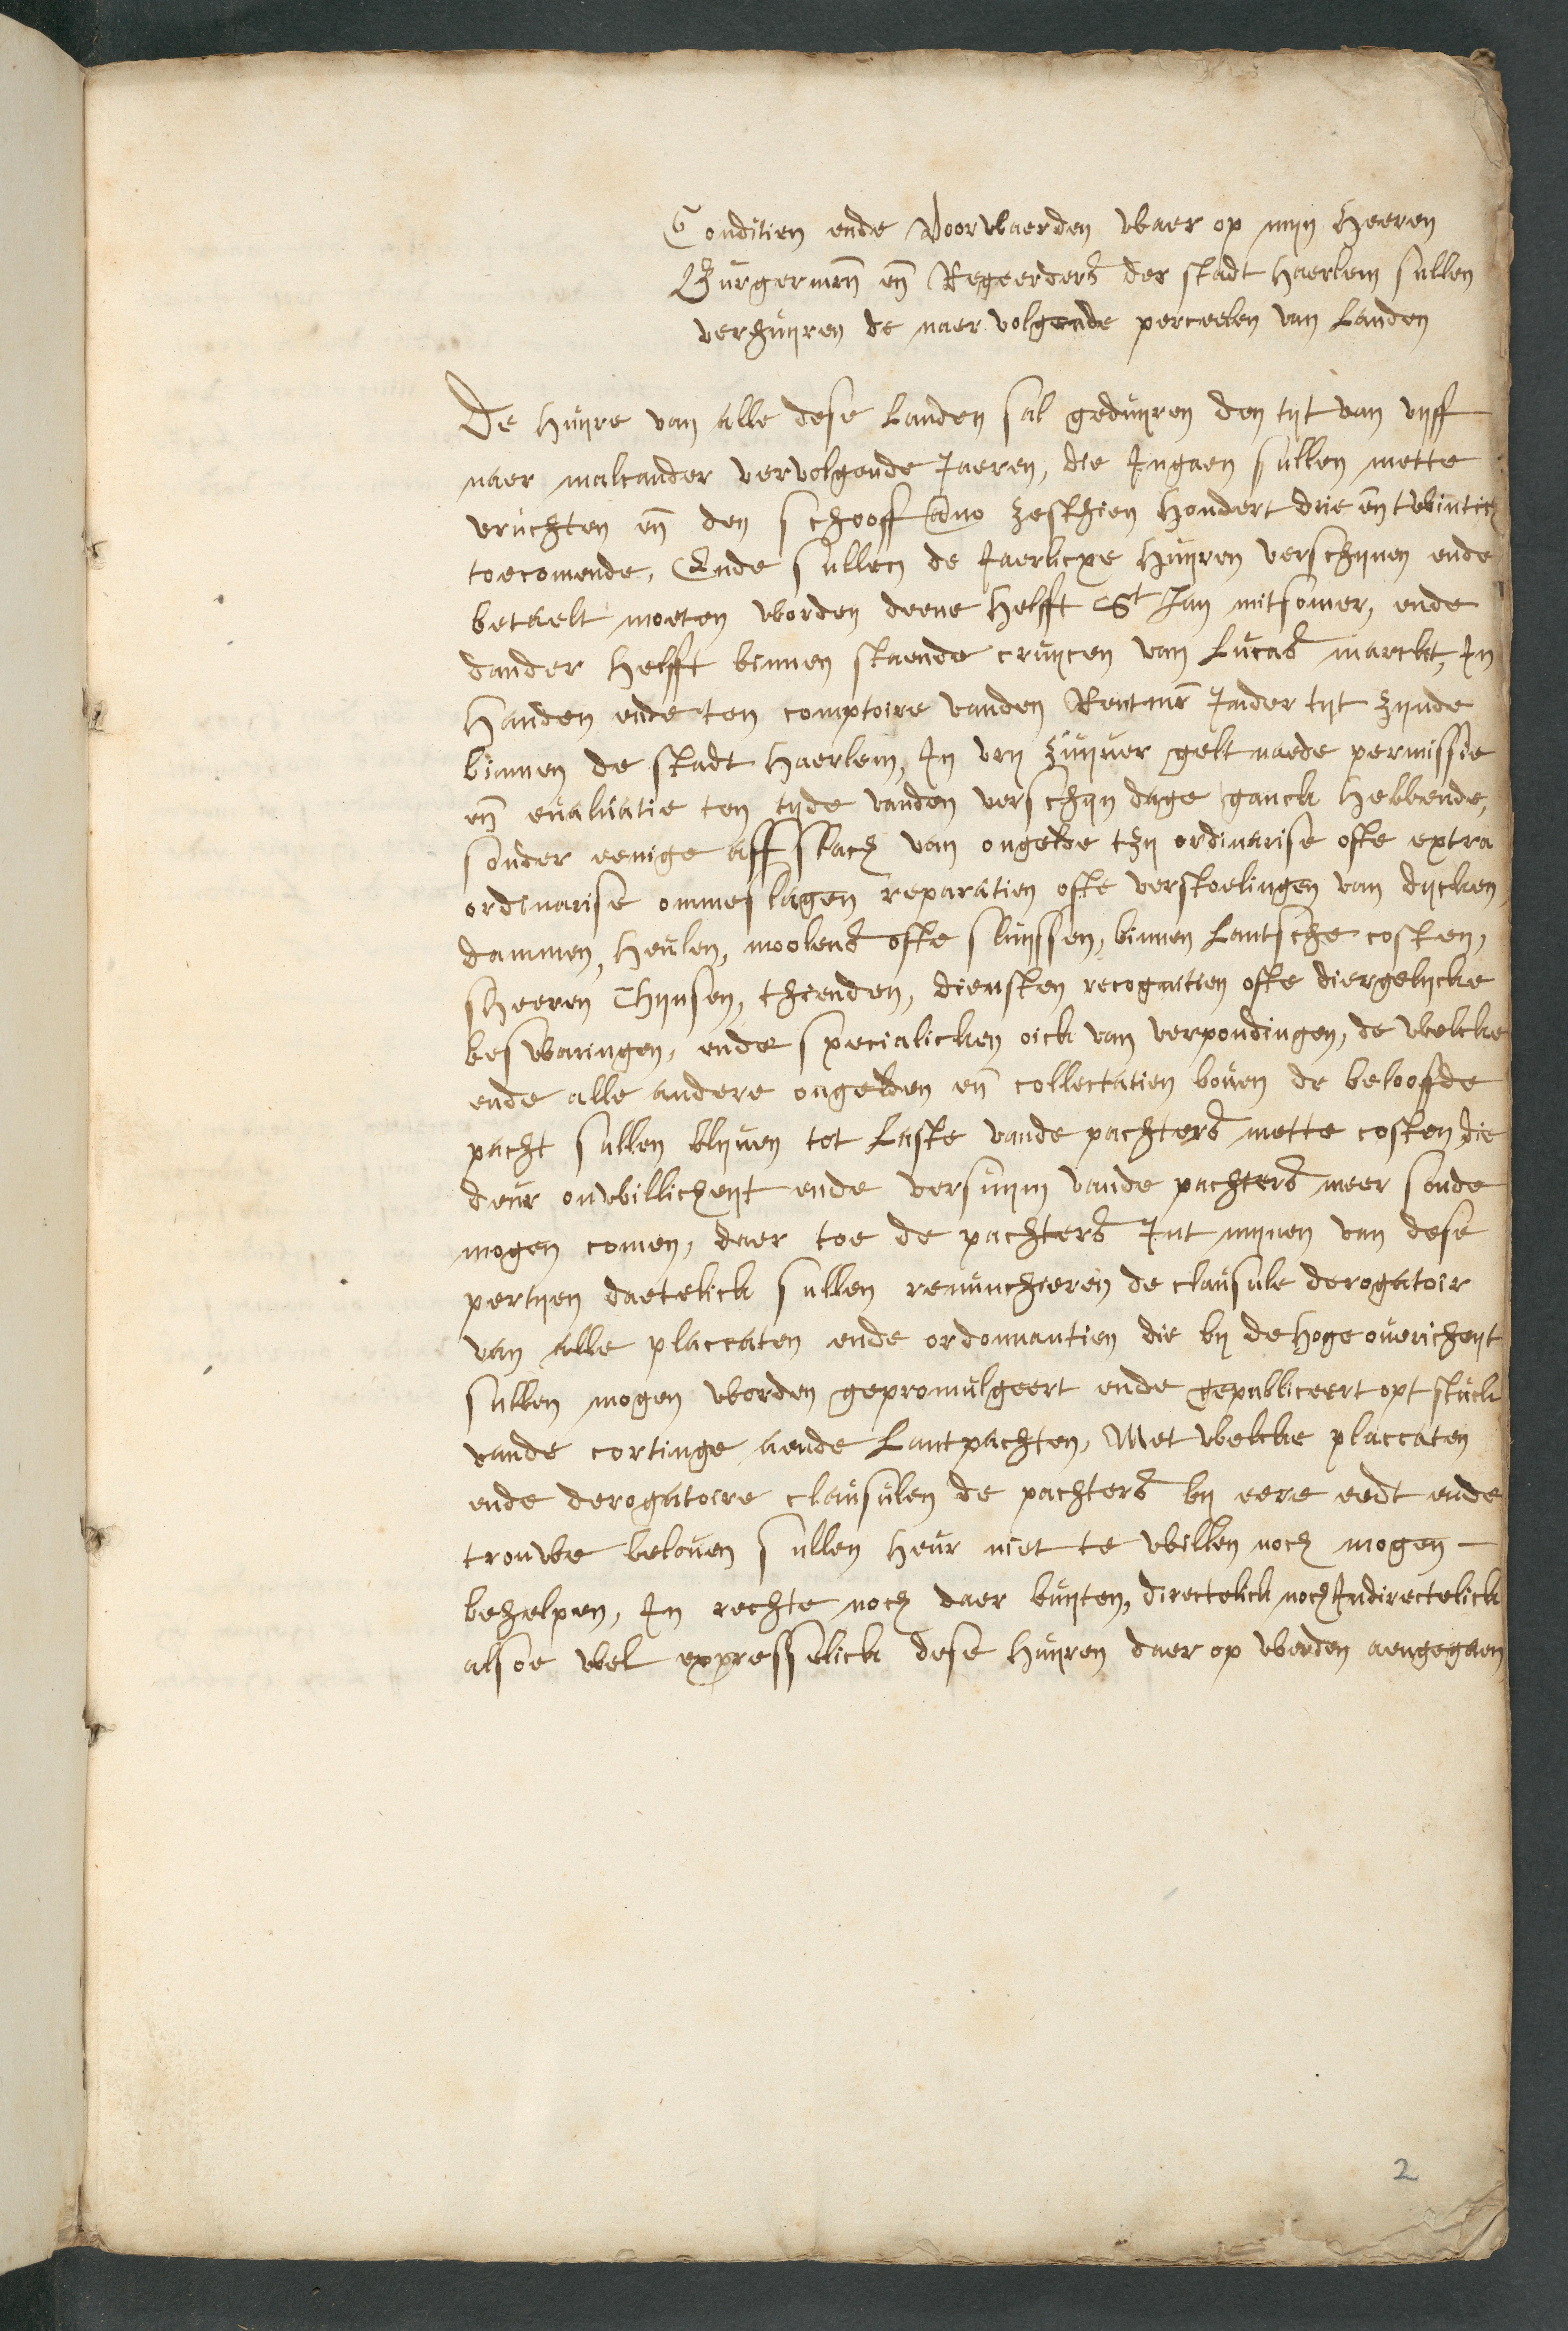 Conditien ende Voorwaerden waer op mijn Heeren
Burgermrn en Regeerders der stadt Haerlem sullen
verhuijren de naer volgende perceelen van Landen
De huijre van alle dese Landen sal geduijren den tijt van vijff
naer malcander vervolgende Jaeren, die Ingaen sullen mette
vruchten en den schooff Ano zesthien hondert drie en twintich
toecomende, Ende sullen de Jaerlicxe huijren verschijnen ende
betaelt moeten worden deene helfft St Jan mitsomer, ende
dander helfft binnen staende cruijcen van Lucas marckt, In
handen ende ten comptoire vanden Rentmr Inder tijt zijnde
binnen de stadt Haerlem, In vrij zuijver gelt naede permissie
en evaluatie ten tijde vanden verschijn dage ganck hebbende,
sonder eenige affslach van ongelde tzij ordinarise ofte extra
ordinarise ommeslagen reparatien ofte verstoelingen van dijcken
dammen, heulen, moolens ofte sluijssen, binnen Lantsche costen,
sheeren Thijnsen, thienden, diensten recognitien ofte diergelijcke
beswaringen, ende specialicken oick van verpondingen, de welcke
ende alle andere ongelden en collectatien boven de beloofde
pacht sullen blijven tot Laste vande pachters mette costen die
deur onwillicheijt ende versuijm vande pachters meer soude
mogen comen, daer toe de pachters Int mijnen van dese
pertijen daetelick sullen renunchieren de clausule derogatoir
van alle placcaten ende ordonnantien die bij de hoge overicheijt
sullen mogen worden gepromulgeert ende gepubliceert opt stuck
vande cortinge aende Lantpachten, Met welcke placcaten
ende derogatoire clausulen de pachters bij eere eedt ende
trouwe beloven sullen heur niet te willen noch mogen -
behelpen, In rechte noch daer buijten, directelick noch Indirectelick
alsoe wel expresselick dese huijren daer op werden aengegaen
2